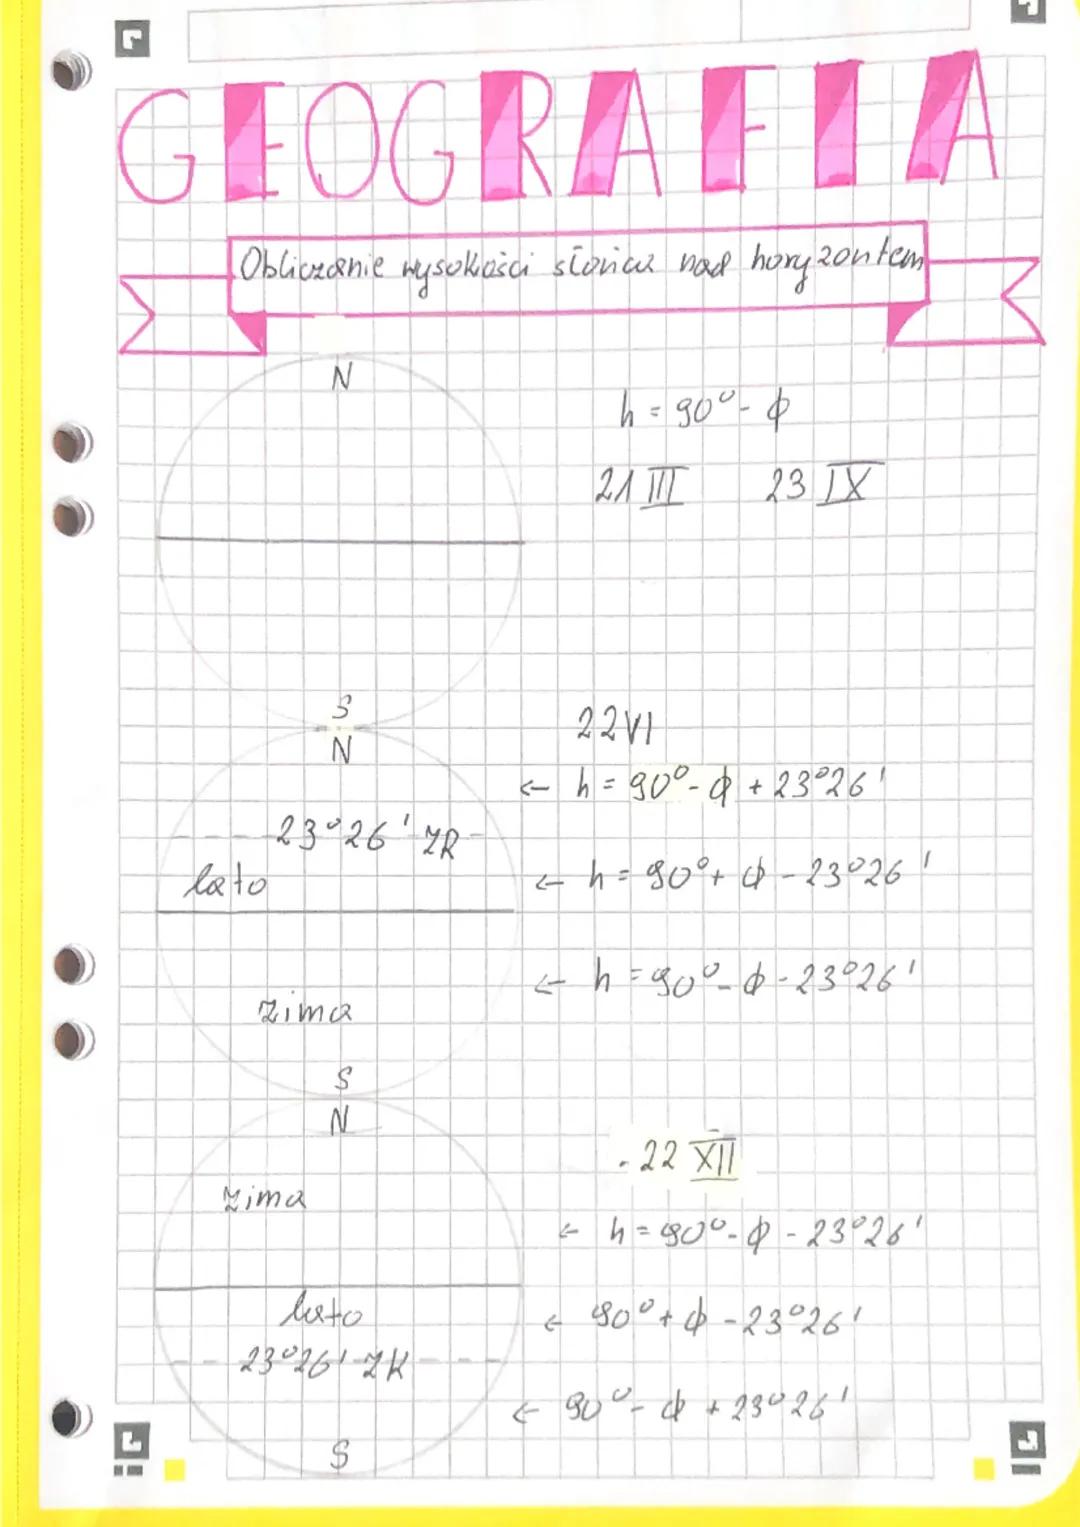 GEOGRAFIA
Obliczanie wysokości słońca nad horyzontem
N
h = 90° - ϕ
21 III 23 IX
S
N
22 VI
← h = 90° - ϕ + 23°26'
23°26' ZR
lato
← h = 90° + ϕ - 23°26'
← h = 90° - ϕ - 23°26'
zima
S
N
. 22 XII
zima
← h = 90° - ϕ - 23°26'
lato
← 90° + ϕ - 23°26'
23°26' ZK
← 90° - ϕ + 23°26'
S